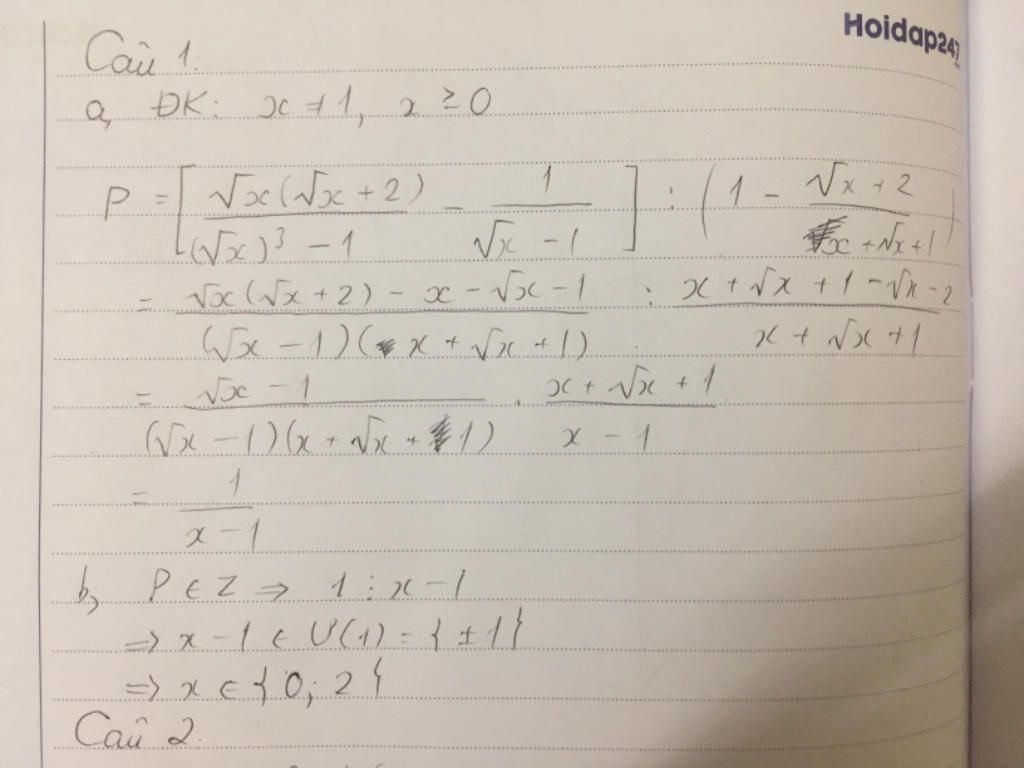 Hoidap247
Câu 1.
a, ĐK: x ≠ 1, x ≥ 0
P = [ √x(√x + 2) / (√x)³ - 1 - 1 / √x - 1 ] : ( 1 - √x + 2 / x + √x + 1 )
= √x(√x + 2) - x - √x - 1 / (√x - 1)(x + √x + 1) : x + √x + 1 - √x - 2 / x + √x + 1
= √x - 1 / (√x - 1)(x + √x + 1) . x + √x + 1 / x - 1
= 1 / x - 1
b, P ∈ Z ⇒ 1 ⋮ x - 1
⇒ x - 1 ∈ Ư(1) = { ± 1 }
⇒ x ∈ { 0; 2 }
Câu 2.